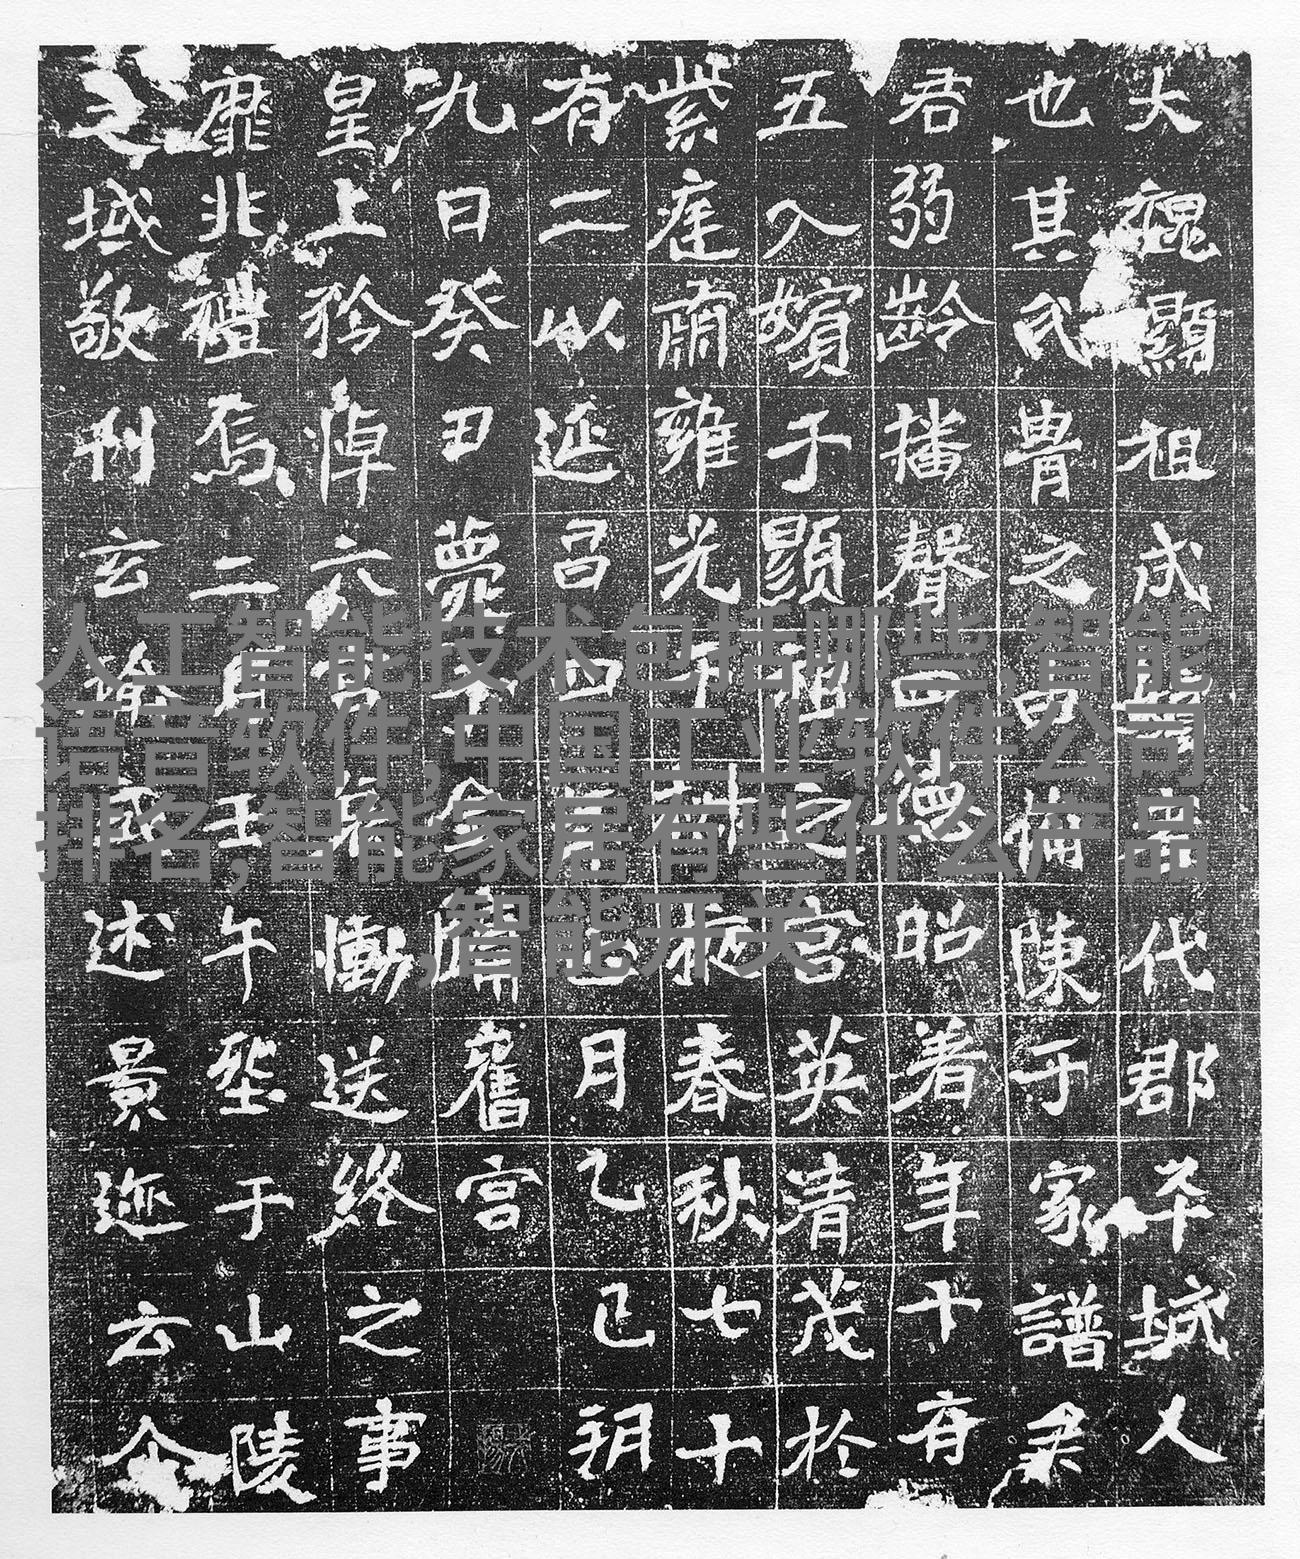 大魏顯祖成代郡平城人
也其氏胄之備陳于家譜
君弱齡播聲四德昭著年十有
五入嬪于顯祖之宮英清茂於
紫庭肅雍光于椒掖春秋七十
有二以延昌四年正月乙巳朔
九日癸丑薨于金墉舊宮
皇上矜悼六宮哀慟送終之事
靡非禮焉二月壬午塟于山陵
之域敬刊玄瑜述景迹云尒
人工智能技术包括哪些,智能
语音软件,中国工业软件公司
排名,智能家居有些什么产品
,智能开关